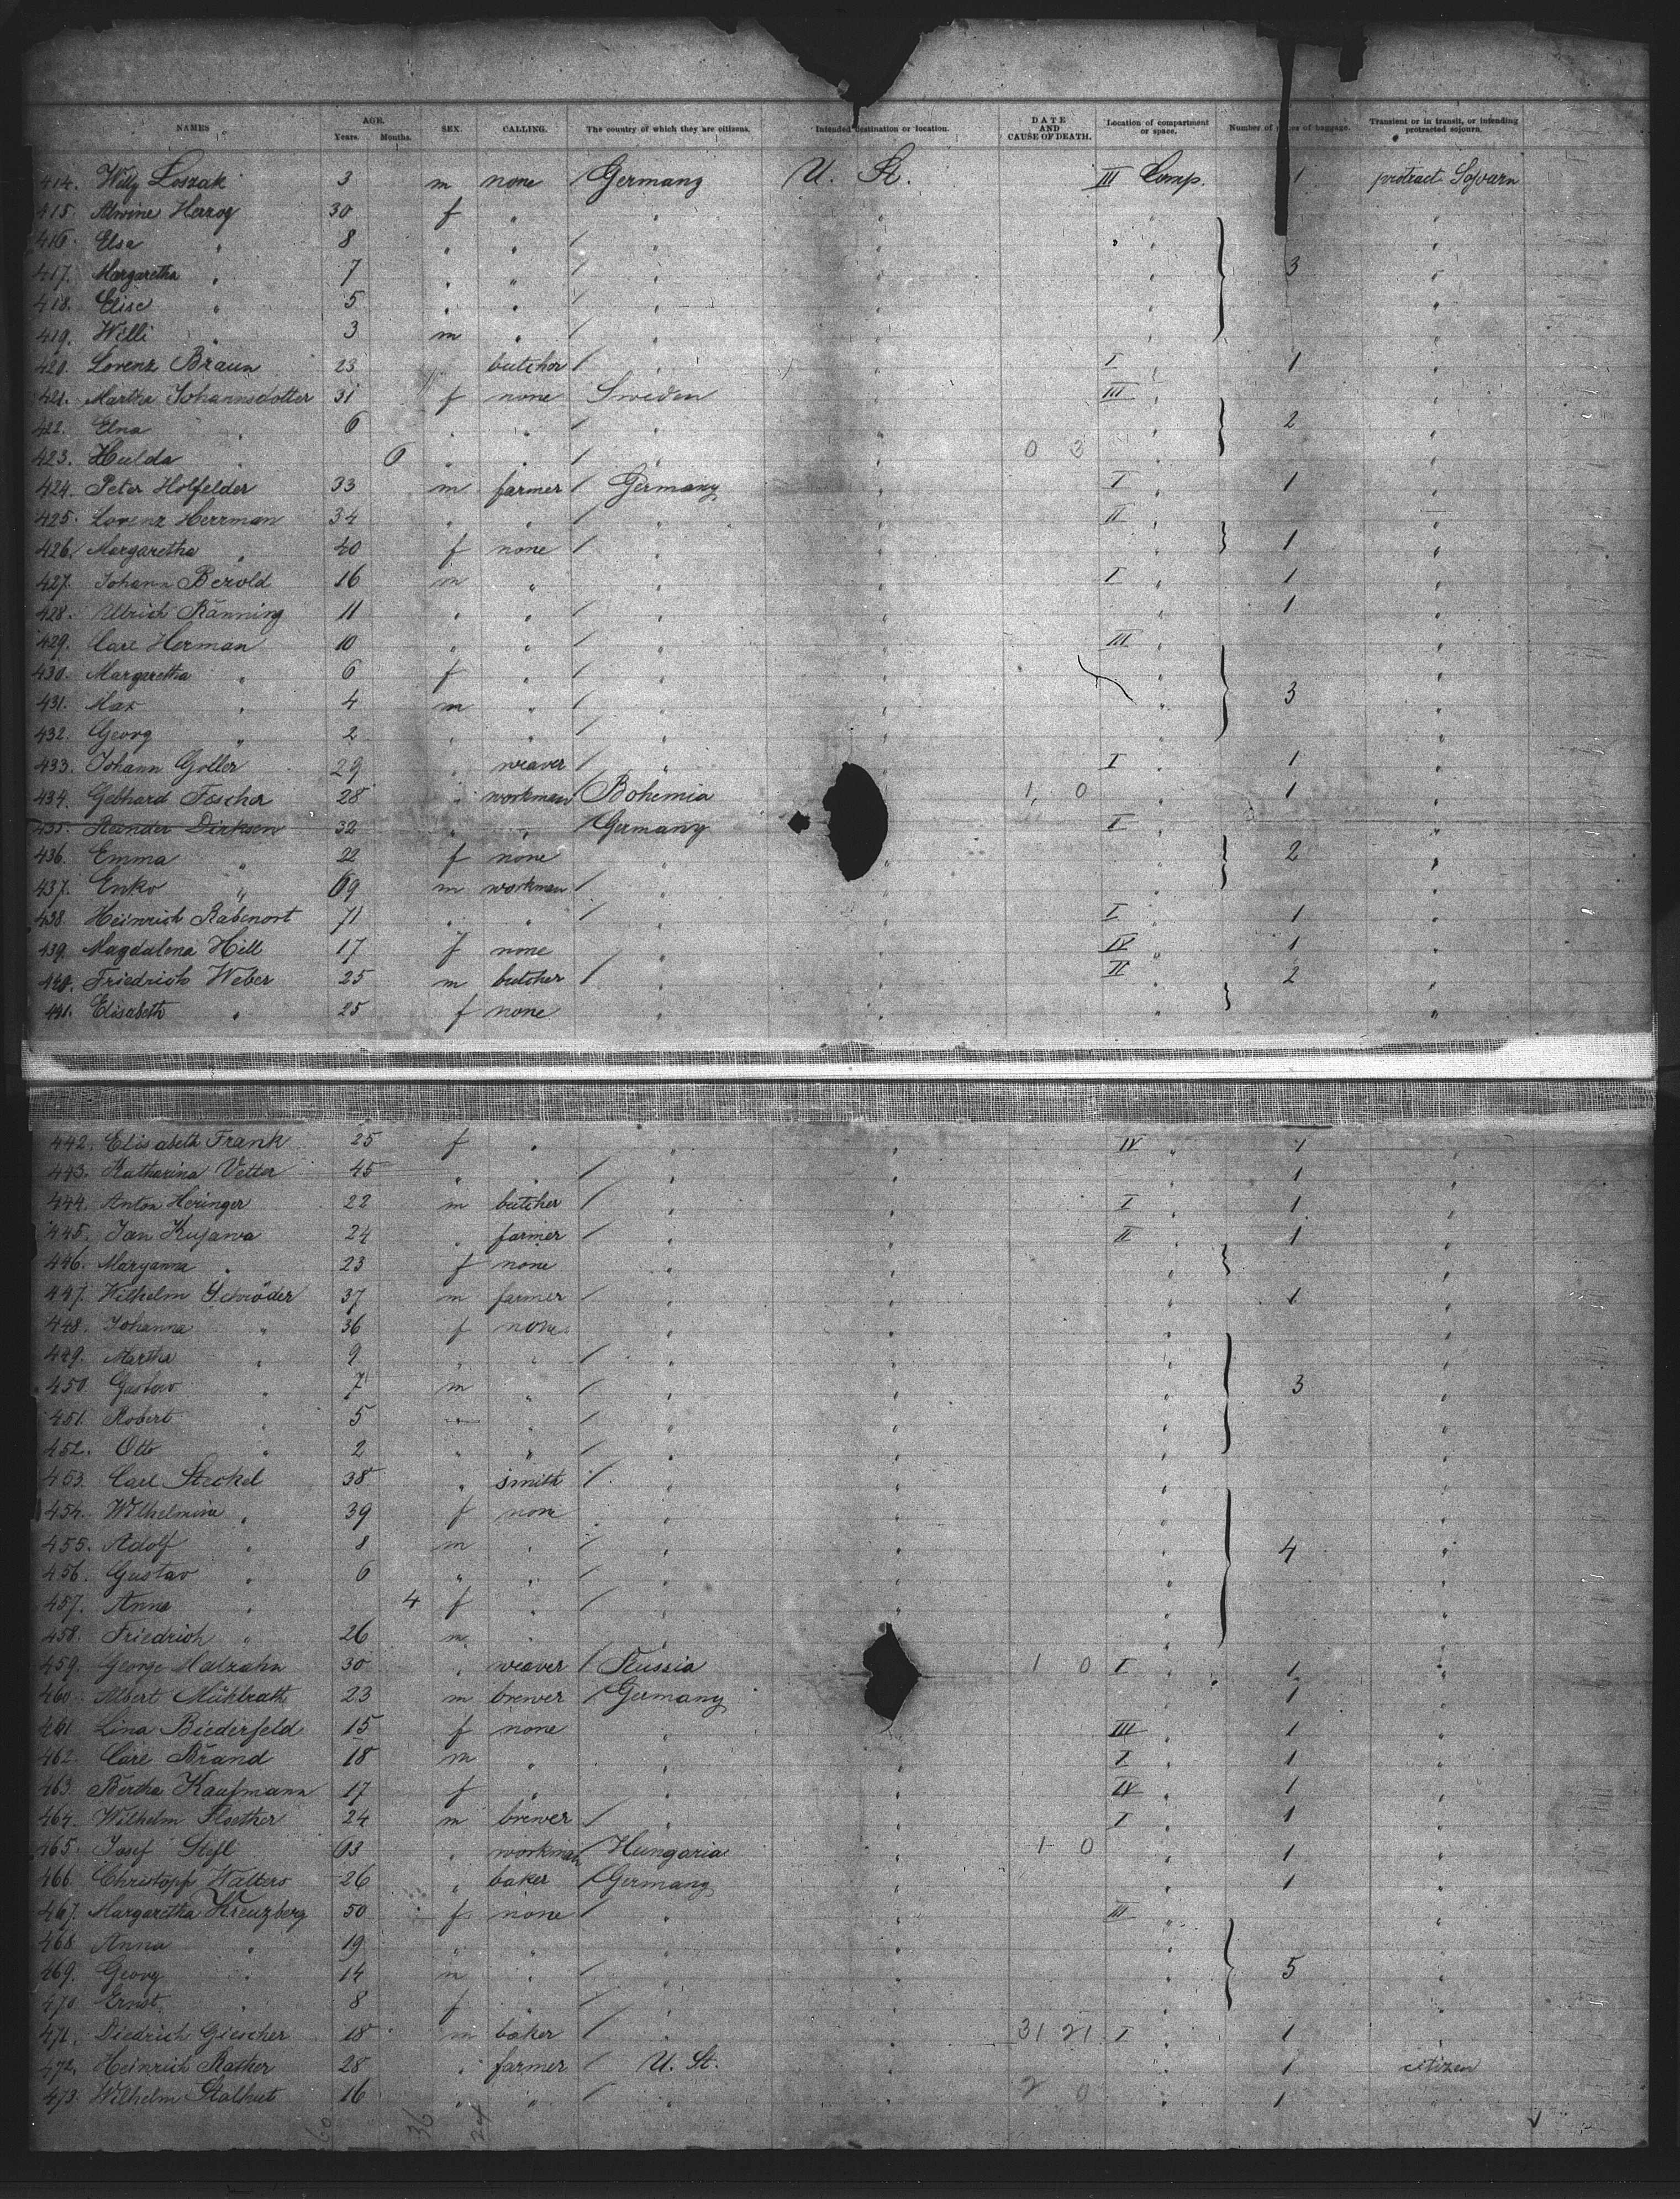 NAMES AGE. Years. Months. SEX. CALLING. The country of which they are citizens. Intended destination or location. DATE AND CAUSE OF DEATH. Location of compartment or space. Number of pieces of baggage. Transient or in transit, or intending protracted sojourn.
414. Willy Loszak 3 m none / Germany U. St. III Comp. 1 protract Sojourn
415. Alwine Herzog 30 f " " " "
416. Elsa " 8 " " / " " " "
417. Margaretha " 7 " " / " " " 3 "
418. Elise " 5 " " / " " " "
419. Willi " 3 m " / " " " "
420. Lorenz Braun 23 " butcher / " " I " 1 "
421. Martha Johannsdotter 31 f none Sweden " III " "
422. Elna " 6 " " / " " " 2 "
423. Hulda " 6 " " / " " 0 3 " "
424. Peter Holfelder 33 m farmer / Germany " I " 1 "
425. Lorenz Herrman 34 " " / " " II " "
426. Margaretha " 40 f none / " " " 1 "
427. Johann Berold 16 m " " " I " 1 "
428. Ulrich Ränning 11 " " / " " " 1 "
429. Carl Herman 10 " " / " " III " "
430. Margaretha " 6 f " / " " " "
431. Max " 4 m " / " " " 3 "
432. Georg " 2 " " / " " " "
433. Johann Goller 29 " weaver / " " I " 1 "
434. Gebhard Fischer 28 " workman / Bohemia 1 0 " 1 "
435. Reender Dirksen 32 " " / Germany I " "
436. Emma " 22 f none " " " 2 "
437. Enko " 69 m workman / " " " "
438. Heinrich Rabenort 71 " " / " " I " 1 "
439. Magdalena Hill 17 f none " " IV " 1 "
440. Friedrich Weber 25 m butcher / " " II " 2 "
441. Elisabeth " 25 f none " " " "
442. Elisabeth Frank 25 f " " " IV " 1 "
443. Katharina Vetter 45 " " / " " " 1 "
444. Anton Heringer 22 m butcher / " " I " 1 "
445. Jan Kujawa 24 " farmer / " " II " 1 "
446. Maryanna " 23 f none " " " "
447. Wilhelm Schröder 37 m farmer / " " " 1 "
448. Johanna " 36 f none " " " "
449. Martha " 9 " " / " " " "
450. Gustav " 7 m " / " " " 3 "
451. Robert " 5 " " / " " " "
452. Otto " 2 " " / " " " "
453. Carl Steckel 38 " smith / " " " "
454. Wilhelmine " 39 f none " " " "
455. Adolf " 8 m " / " " " 4 "
456. Gustav " 6 " " / " " " "
457. Anna " 4 f " / " " " "
458. Friedrich " 26 m " " " "
459. George Malzahn 30 " weaver / Russia 1 0 I " 1 "
460. Albert Mühlrath 23 m brewer / Germany " 1 "
461. Lina Biederfeld 15 f none " " III " 1 "
462. Carl Brand 18 m " " " I " 1 "
463. Bertha Kaufmann 17 f " " " IV " 1 "
464. Wilhelm Floether 24 m brewer / " " I " 1 "
465. Josef Stefl 63 " workman / Hungaria " 1 0 " 1 "
466. Christoph Walters 26 " baker / Germany " " 1 "
467. Margaretha Kreuzberg 50 f none / " " III " "
468. Anna " 19 " " " " " "
469. Georg " 14 m " / " " " 5 "
470. Ernst " 8 f " / " " " "
471. Diedrich Giescher 18 m baker / " " 31 21 I " 1 "
472. Heinrich Rather 28 " farmer / U. St. " " 1 citizen
473. Wilhelm Stalhut 16 " " / " " 2 0 " 1 "
60 36 24